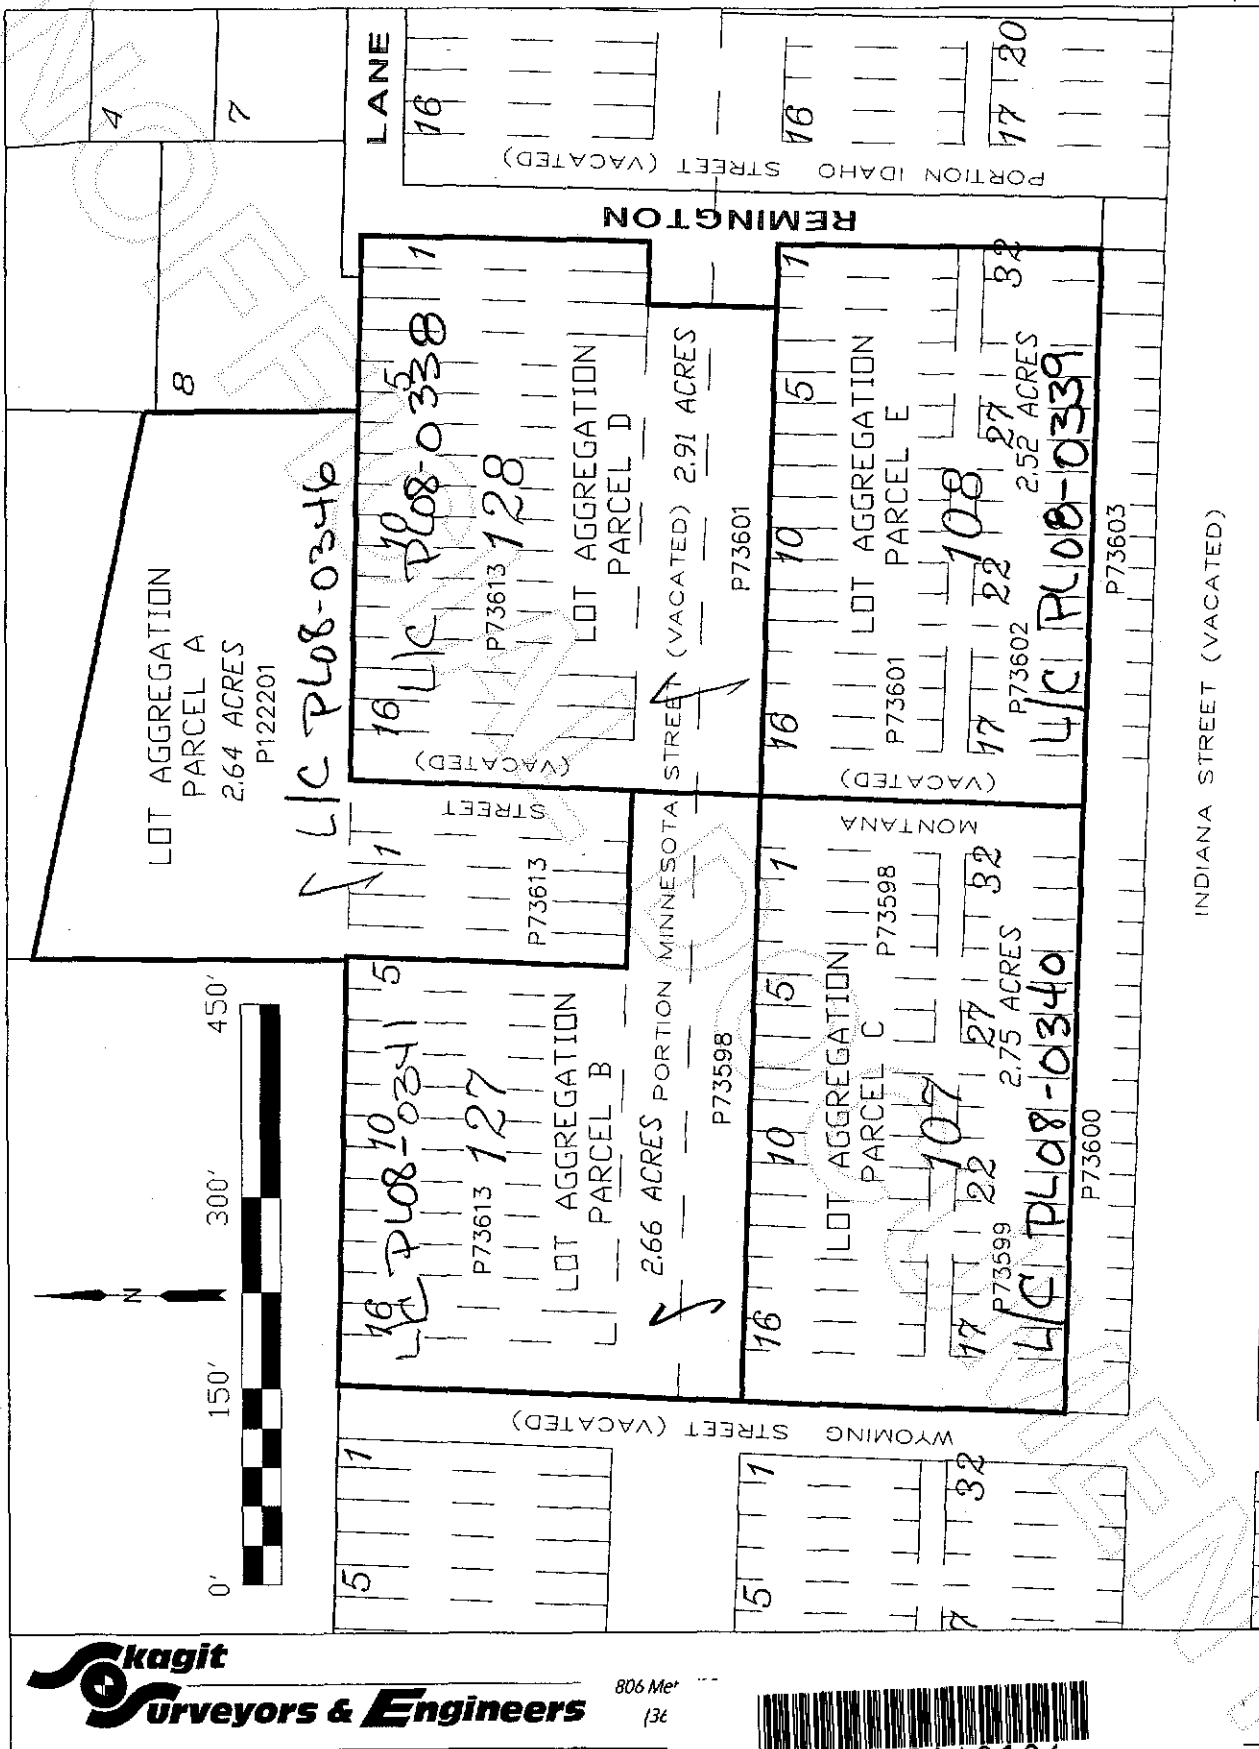 4
7
8
LANE
16
16
17 20
PORTION IDAHO STREET (VACATED)
REMINGTON
LOT AGGREGATION
PARCEL A
2.64 ACRES
P122201
L/C PL08-0346
16 10 5 1
L/C PL08-0338
P73613 128
LOT AGGREGATION
PARCEL D
(VACATED)
STREET
1
P73613
PORTION MINNESOTA STREET (VACATED) 2.91 ACRES
P73601
16 10 5 1
LOT AGGREGATION
PARCEL E
P73601
108
17 22 27 32
P73602
2.52 ACRES
L/C PL08-0339
P73603
(VACATED)
MONTANA
INDIANA STREET (VACATED)
16 10 5
L/C PL08-0341
P73613 127
LOT AGGREGATION
PARCEL B
2.66 ACRES
P73598
16 10 5 1
LOT AGGREGATION
PARCEL C
P73598
107
17 22 27 32
P73599
2.75 ACRES
L/C PL08-0340
P73600
N
0' 150' 300' 450'
WYOMING STREET (VACATED)
5 1
5 1
32
Skagit
Surveyors & Engineers
806 Met
(36
UNOFFICIAL DOCUMENT